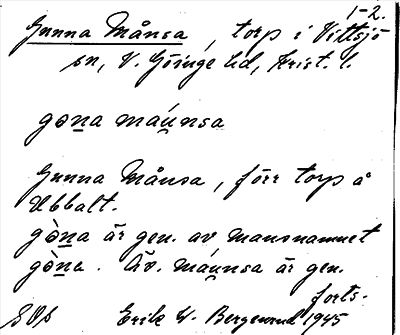 1-2.
Gunna Månsa, torp i Vittsjö
sn, V. Göinge hd, Krist. l.
gòna máunsa
Gunna Månsa, förr torp å
Ubbalt.
gòna är gen. av mansnamnet
gòne. Äv. máunsa är gen.
forts.
Erik W. Bergman 1945